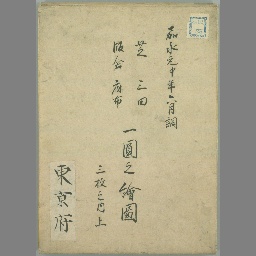 嘉永元申年六月調
芝 三田
飯倉 麻布
一圓之繪圖
三枚之内上
東京府